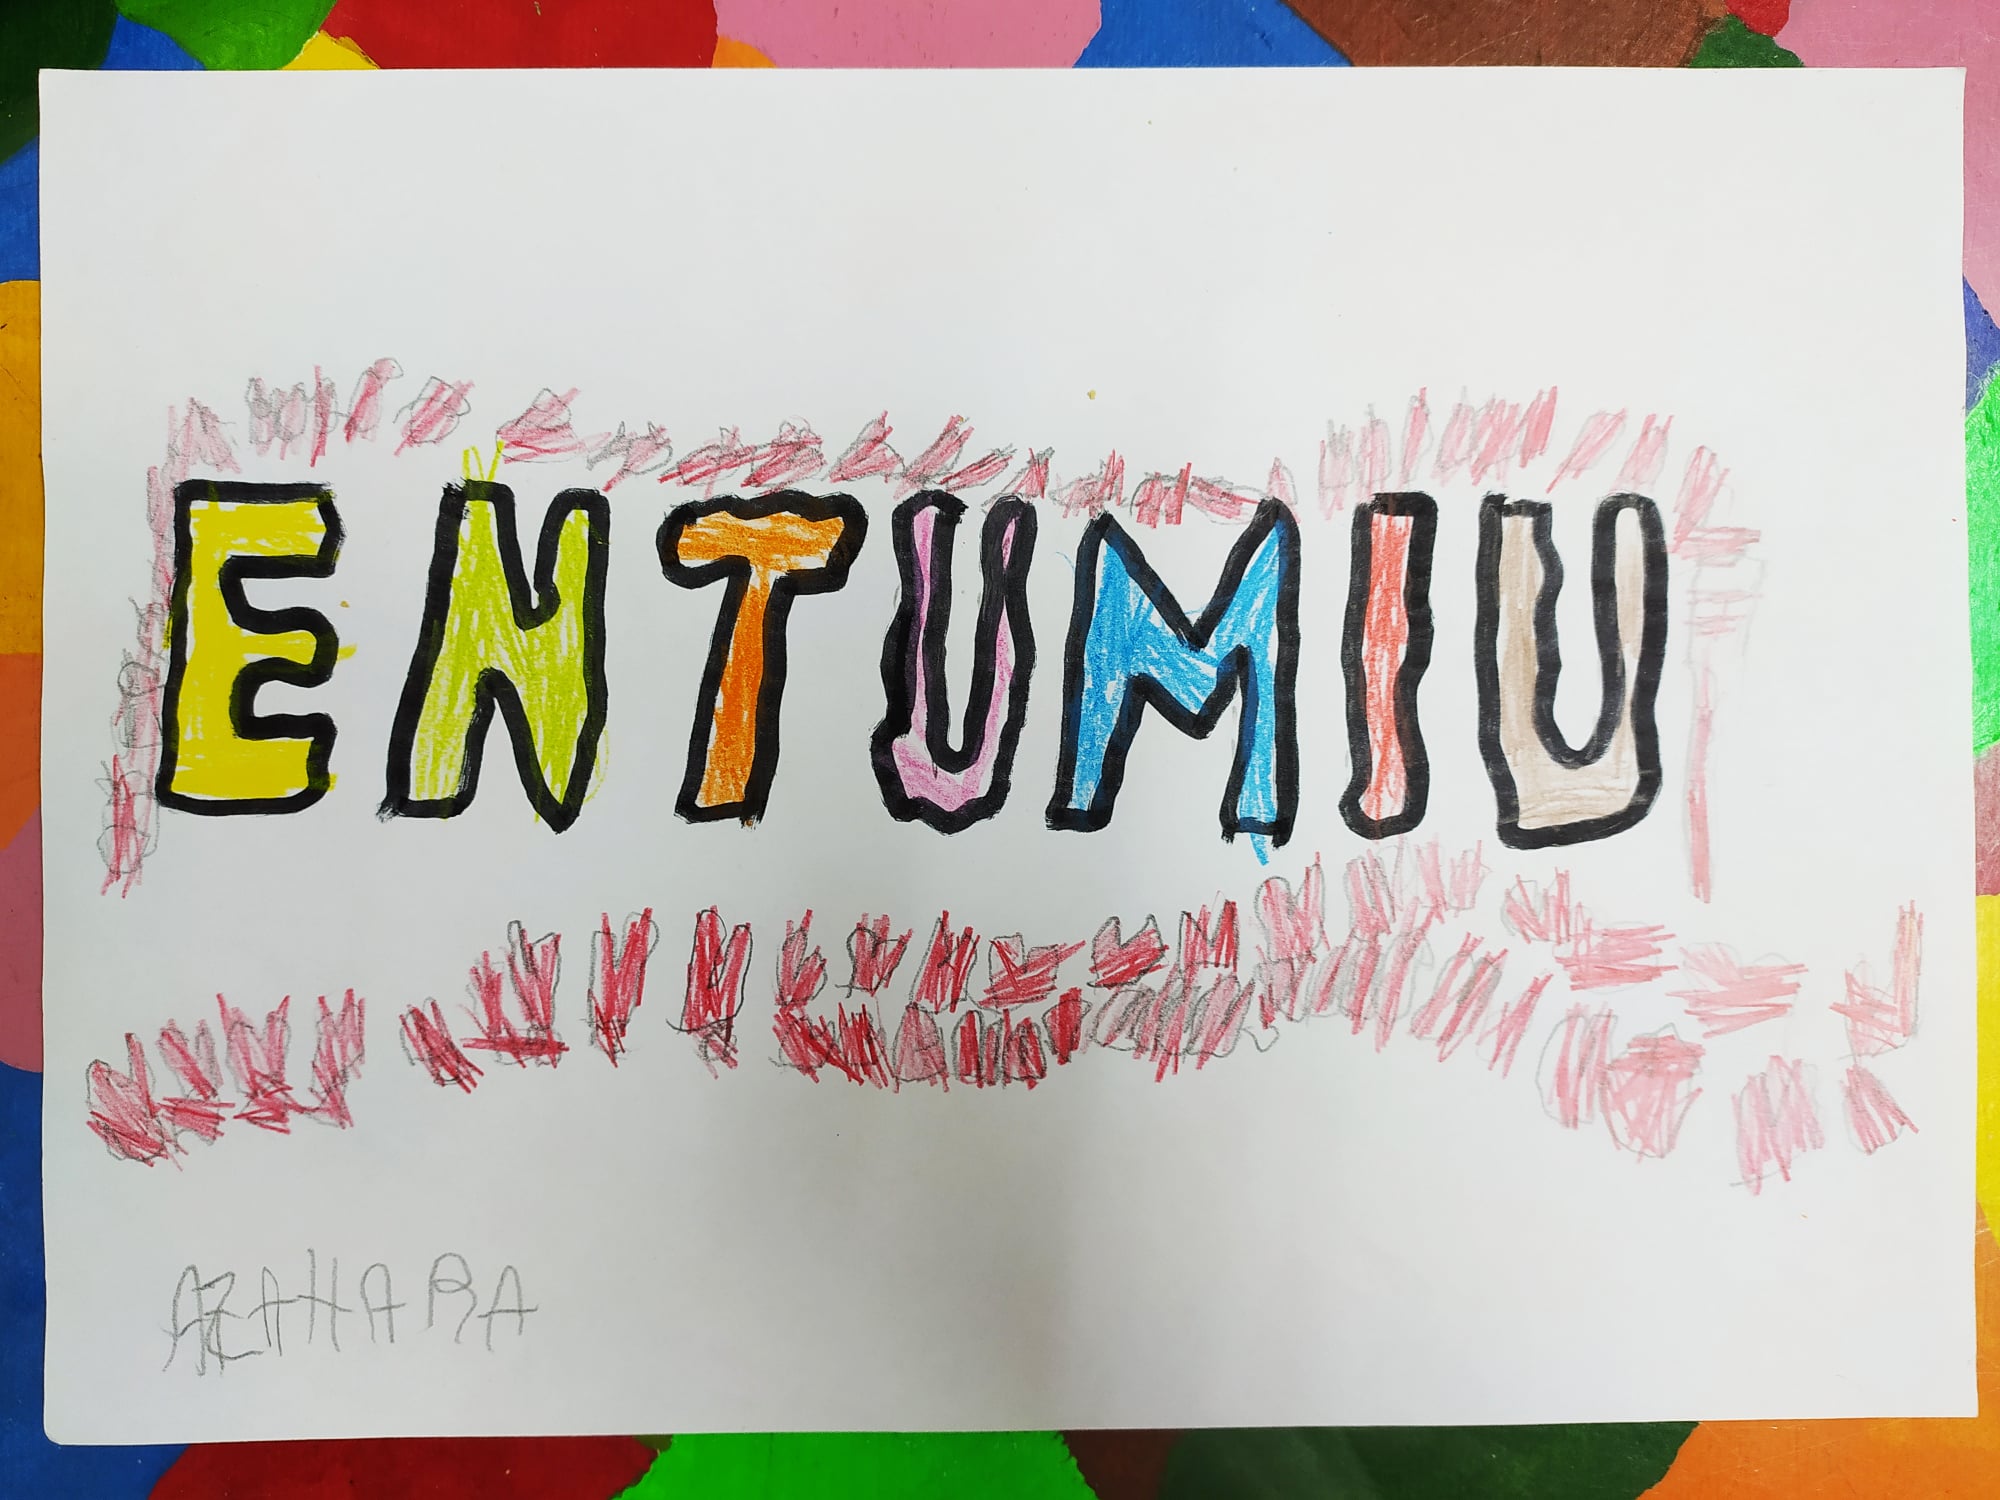 ENTUMIU
AZAHARA